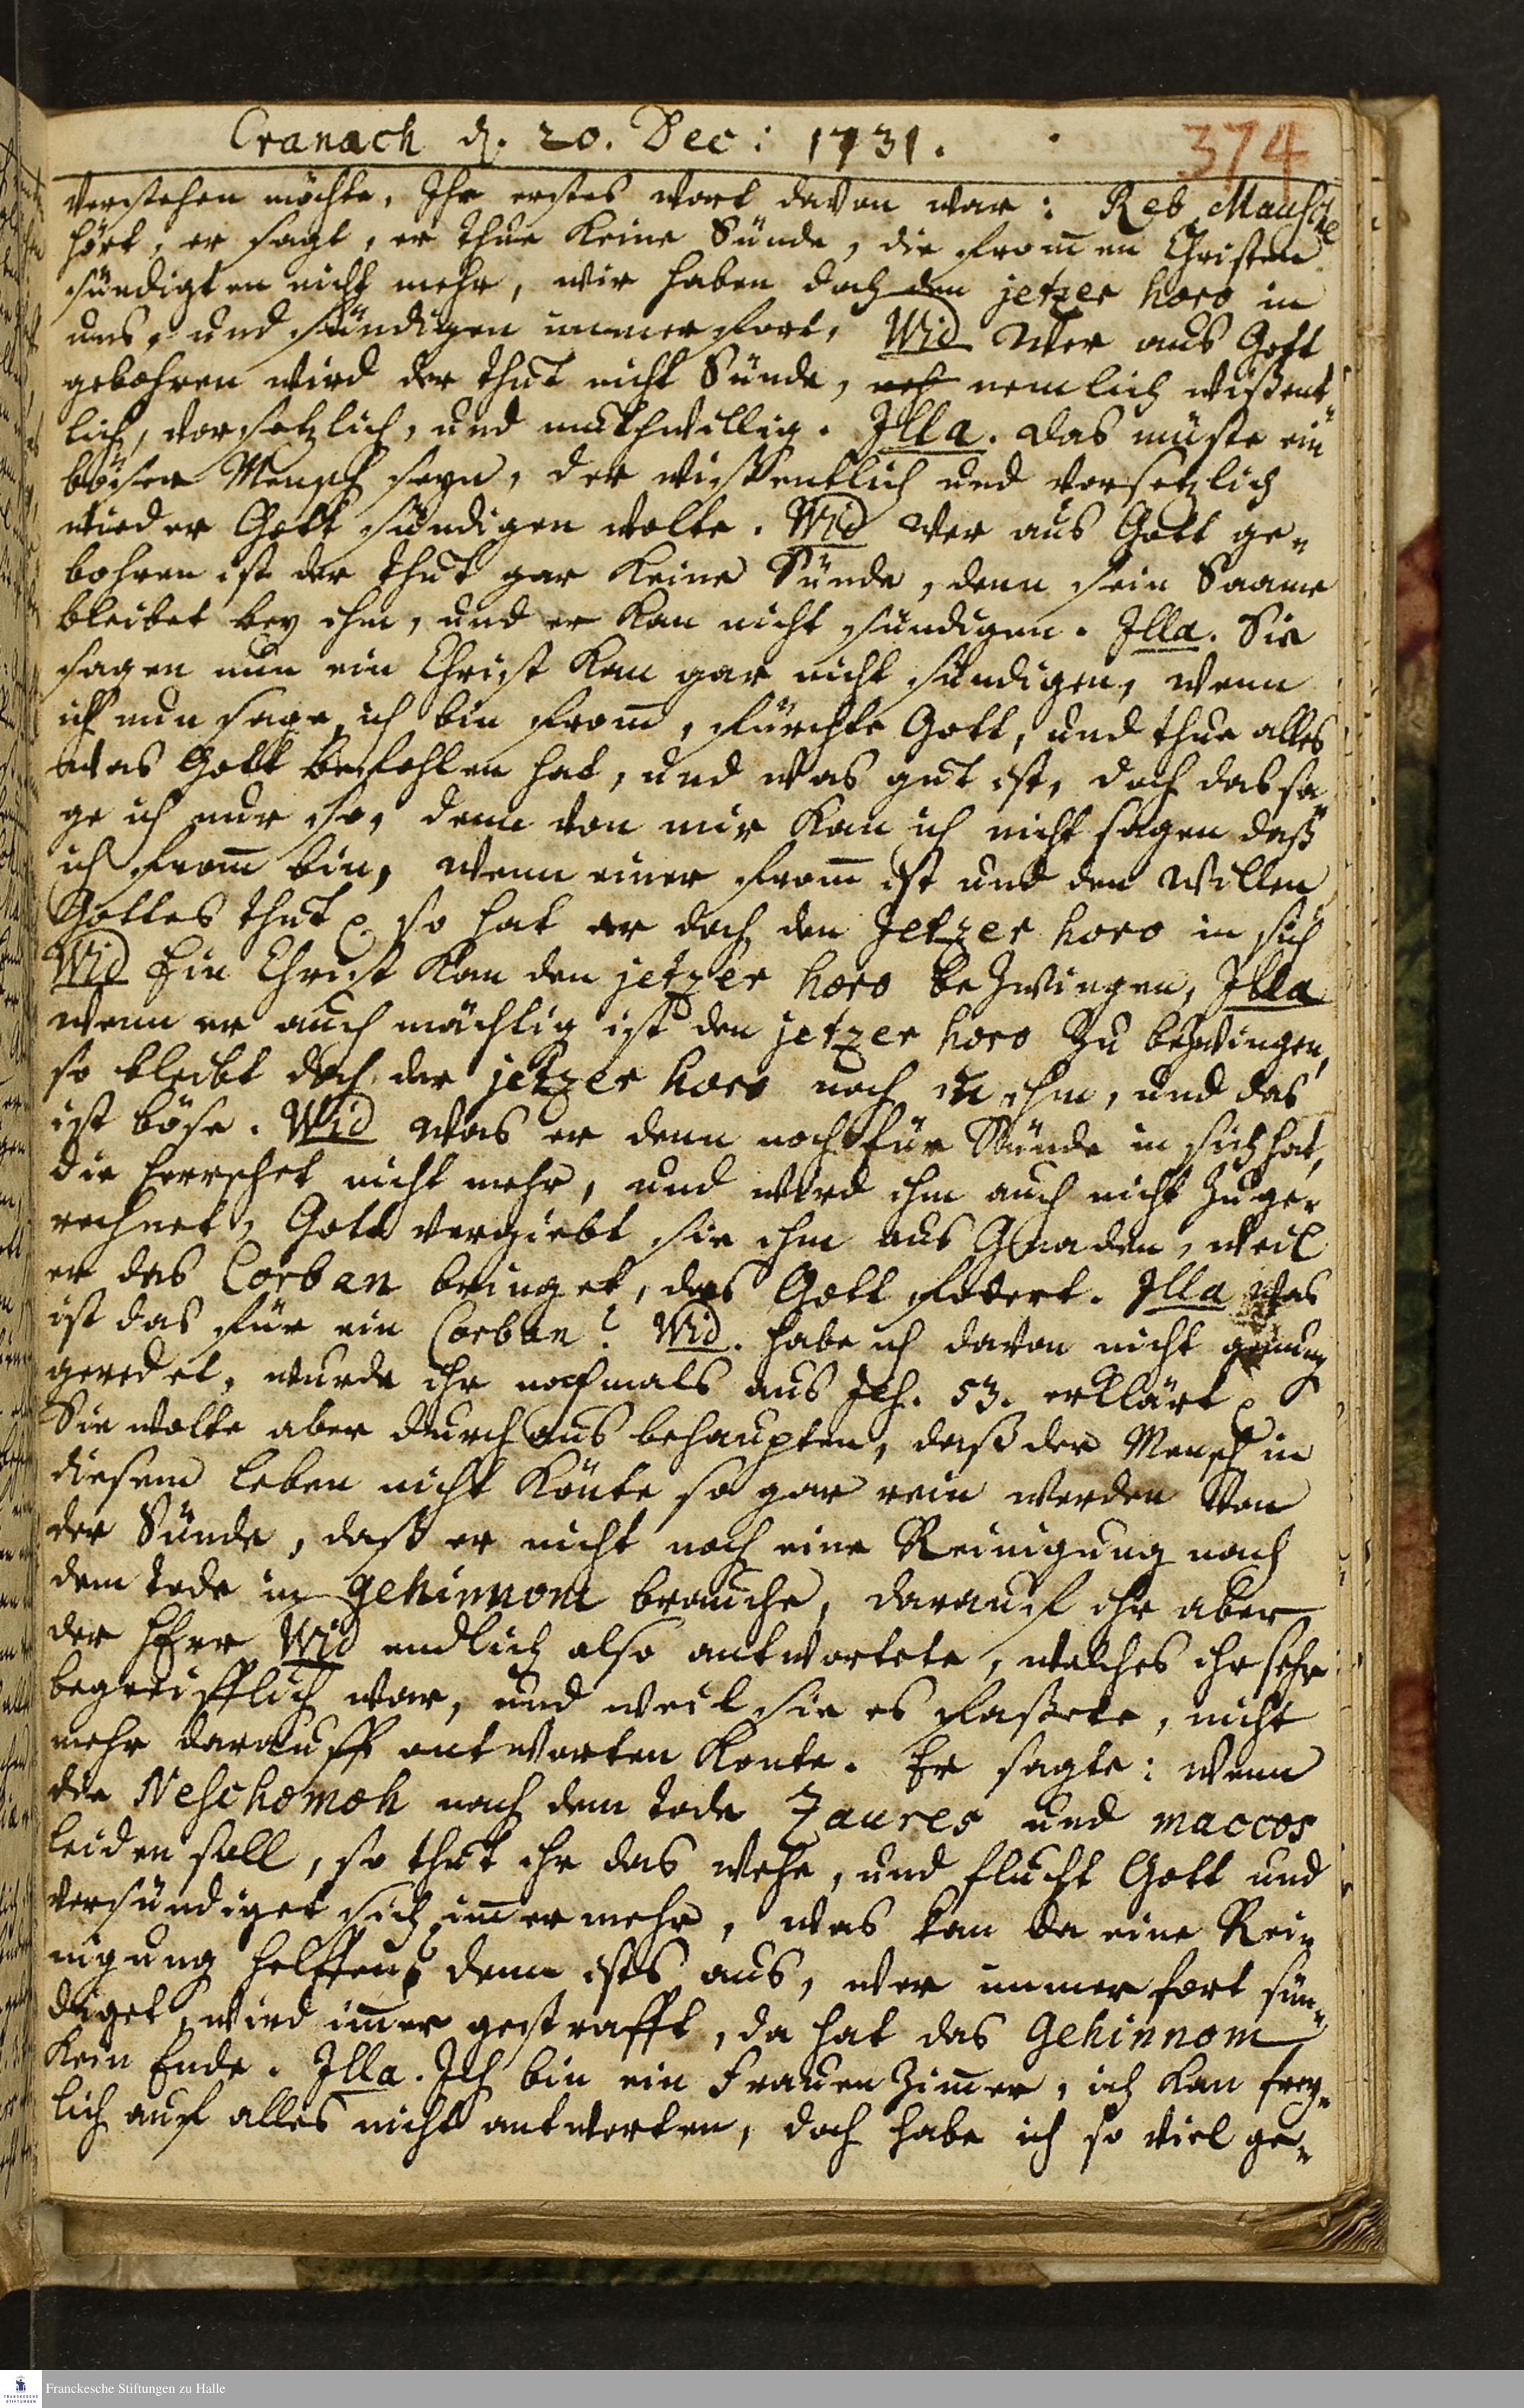 Cranach d. 20. Dec: 1731.
374
verstehen möchte, Ihr erstes wort davon war: Reb Mausche
hört, er sagt, er thue keine Sünde, die from̄en Christen
sündigten nicht mehr, wir haben doch den jetzer horo in
uns, und sündigen immerfort, Wid Wer aus Gott
gebohren wird der thut nicht Sünde, nemlich wißent-
lich, vorsetzlich, und muthwillig. Illa. das müste ein
böser Mensch seyn, der wißentlich und vorsetzlich
wieder Gott sündigen wolte. Wid Wer aus Gott ge-
bohren ist der thut gar keine Sünde, denn sein Saame
bleibet bey ihm, und er kan nicht sündigen. Illa. Sie
sagen nun ein Christ kan gar nicht sündigen, wenn
ich nun sage, ich bin from̄, fürchte Gott, und thue alles
was Gott befohlen hat, und was gut ist, doch das sa-
ge ich nur so, denn von mir kan ich nicht sagen daß
ich from̄ bin, wenn einer from̄ ist und den Willen
Gottes thut so hat er doch den Jetzer horo in sich
Wid Ein Christ kan den jetzer horo bezwingen, Illa
wenn er auch mächtig ist den jetzer horo zu bezwingen,
so bleibt doch der jetzer horo noch in ihm, und das
ist böse. Wid Was er denn noch für Sünde in sich hat,
die herrschet nicht mehr, und wird ihm auch nicht zuge-
rechnet, Gott vergiebt sie ihm aus Gnaden, weil
er das Corban bringet, das Gott fodert. Illa was
ist das für ein Corban? Wid. habe ich davon nicht genung
geredet, wurde ihr nochmals aus Jes. 53. erklärt
Sie wolte aber durchaus behaupten, daß der Mensch in
diesem Leben nicht könte so gar rein werden von
der Sünde, daß er nicht noch eine Reinigung nach
dem tode in gehinnom brauche, darauf ihr aber
der Herr Wid endlich also antwortete, welches ihr sehr
begreifflich war, und weil sie es faßete, nicht
mehr darauff antworten konte. Er sagte: Wenn
die Neschomoh nach dem tode Zaures und maccos
leiden soll, so thut ihr das wehe, und flucht Gott und
versündiget sich im̄er mehr, was kan da eine Rei-
nigung helffen denn ists aus, wer immer fort sün-
diget, wird im̄er gestrafft, da hat das Gehinnom
kein Ende. Illa. Ich bin ein Frauenzim̄er, ich kan frey-
lich auf alles nicht antworten, doch habe ich so viel ge-
Franckesche Stiftungen zu Halle